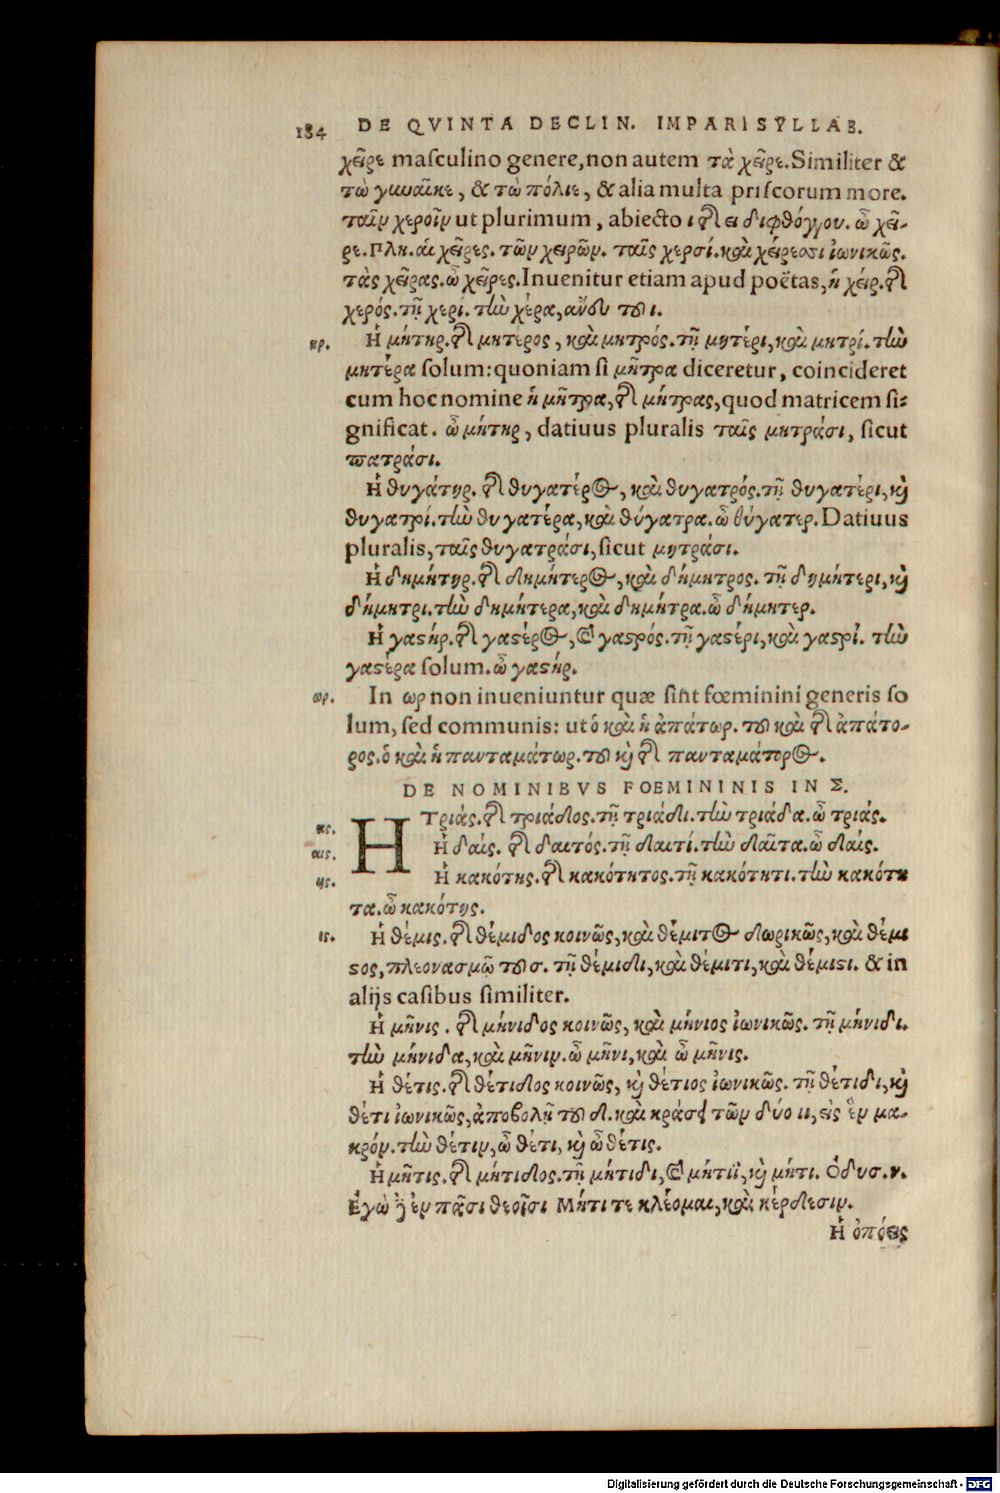 184 DE QVINTA DECLIN. IMPARISYLLAB.
χεῖρε maſculino genere, non autem τὰ χεῖρε. Similiter &
τὼ γυναῖκε, & τὼ πόλιε, & alia multa priſcorum more.
ταῖν χεροῖν ut plurimum, abiecto ι τῆς ει διφθόγγου. ὦ χεῖ-
ρε. Πλη. αἱ χεῖρες. τῶν χειρῶν. ταῖς χερσί. καὶ χείρεσσι ἰωνικῶς.
τὰς χεῖρας. ὦ χεῖρες. Inuenitur etiam apud poëtas, ἡ χέρ. τῆς
χερός. τῇ χερί. τὴν χέρα, ἄνευ τοῦ ι.
ηρ. Ἡ μήτηρ. τῆς μητέρος, καὶ μητρός. τῇ μητέρι, καὶ μητρί. τὴν
μητέρα ſolum: quoniam ſi μῆτρα diceretur, coincideret
cum hoc nomine ἡ μῆτρα, τῆς μήτρας, quod matricem ſi-
gnificat. ὦ μήτηρ, datiuus pluralis ταῖς μητράσι, ſicut
πατράσι.
Ἡ θυγάτηρ. τῆς θυγατέρος, καὶ θυγατρός. τῇ θυγατέρι, καὶ
θυγατρί. τὴν θυγατέρα, καὶ θύγατρα. ὦ θύγατερ. Datiuus
pluralis, ταῖς θυγατράσι, ſicut μητράσι.
Ἡ δημήτηρ. τῆς δημήτερος, καὶ δήμητρος. τῇ δημήτερι, καὶ
δήμητρι. τὴν δημήτερα, καὶ δημήτρα. ὦ δήμητερ.
Ἡ γαστήρ. τῆς γαστέρος, καὶ γαστρός. τῇ γαστέρι, καὶ γαστρί. τὴν
γαστέρα ſolum. ὦ γαστήρ.
ωρ. In ωρ non inueniuntur quæ ſint fœminini generis ſo
lum, ſed communis: ut ὁ καὶ ἡ ἀπάτωρ. τοῦ καὶ τῆς ἀπάτο-
ρος. ὁ καὶ ἡ πανταμάτωρ. τοῦ καὶ τῆς πανταμάτορος.
DE NOMINIBVS FOEMININIS IN Σ.
ας. Η Τριάς. τῆς τριάδος. τῇ τριάδι. τὴν τριάδα. ὦ τριάς.
αις. Ἡ δαίς. τῆς δαιτός. τῇ δαιτί. τὴν δαῖτα. ὦ δαίς.
ης. Ἡ κακότης. τῆς κακότητος. τῇ κακότητι. τὴν κακότη
τα. ὦ κακότης.
ις. Ἡ θέμις. τῆς θέμιδος κοινῶς, καὶ θέμιτος δωρικῶς, καὶ θέμι
στος, πλεονασμῷ τοῦ σ. τῇ θέμιδι, καὶ θέμιτι, καὶ θέμιστι. & in
alijs caſibus ſimiliter.
Ἡ μῆνις. τῆς μήνιδος κοινῶς, καὶ μήνιος ἰωνικῶς. τῇ μήνιδι.
τὴν μήνιδα, καὶ μῆνιν. ὦ μῆνι, καὶ ὦ μῆνις.
Ἡ θέτις. τῆς θέτιδος κοινῶς, καὶ θέτιος ἰωνικῶς. τῇ θέτιδι, καὶ
θέτι ἰωνικῶς, ἀποβολῇ τοῦ δ. καὶ κράσει τῶν δύο ιι, εἰς ἓν μα-
κρόν. τὴν θέτιν, ὦ θέτι, καὶ ὦ θέτις.
Ἡ μῆτις. τῆς μήτιδος. τῇ μήτιδι, καὶ μήτιϊ, καὶ μήτι. Ὀδυσ. ν.
Ἐγὼ δ' ἐν πᾶσι θεοῖσι Μήτι τε κλέομαι, καὶ κέρδεσιν.
Ἡ ὀπόεις
Digitalisierung gefördert durch die Deutsche Forschungsgemeinschaft - DFG